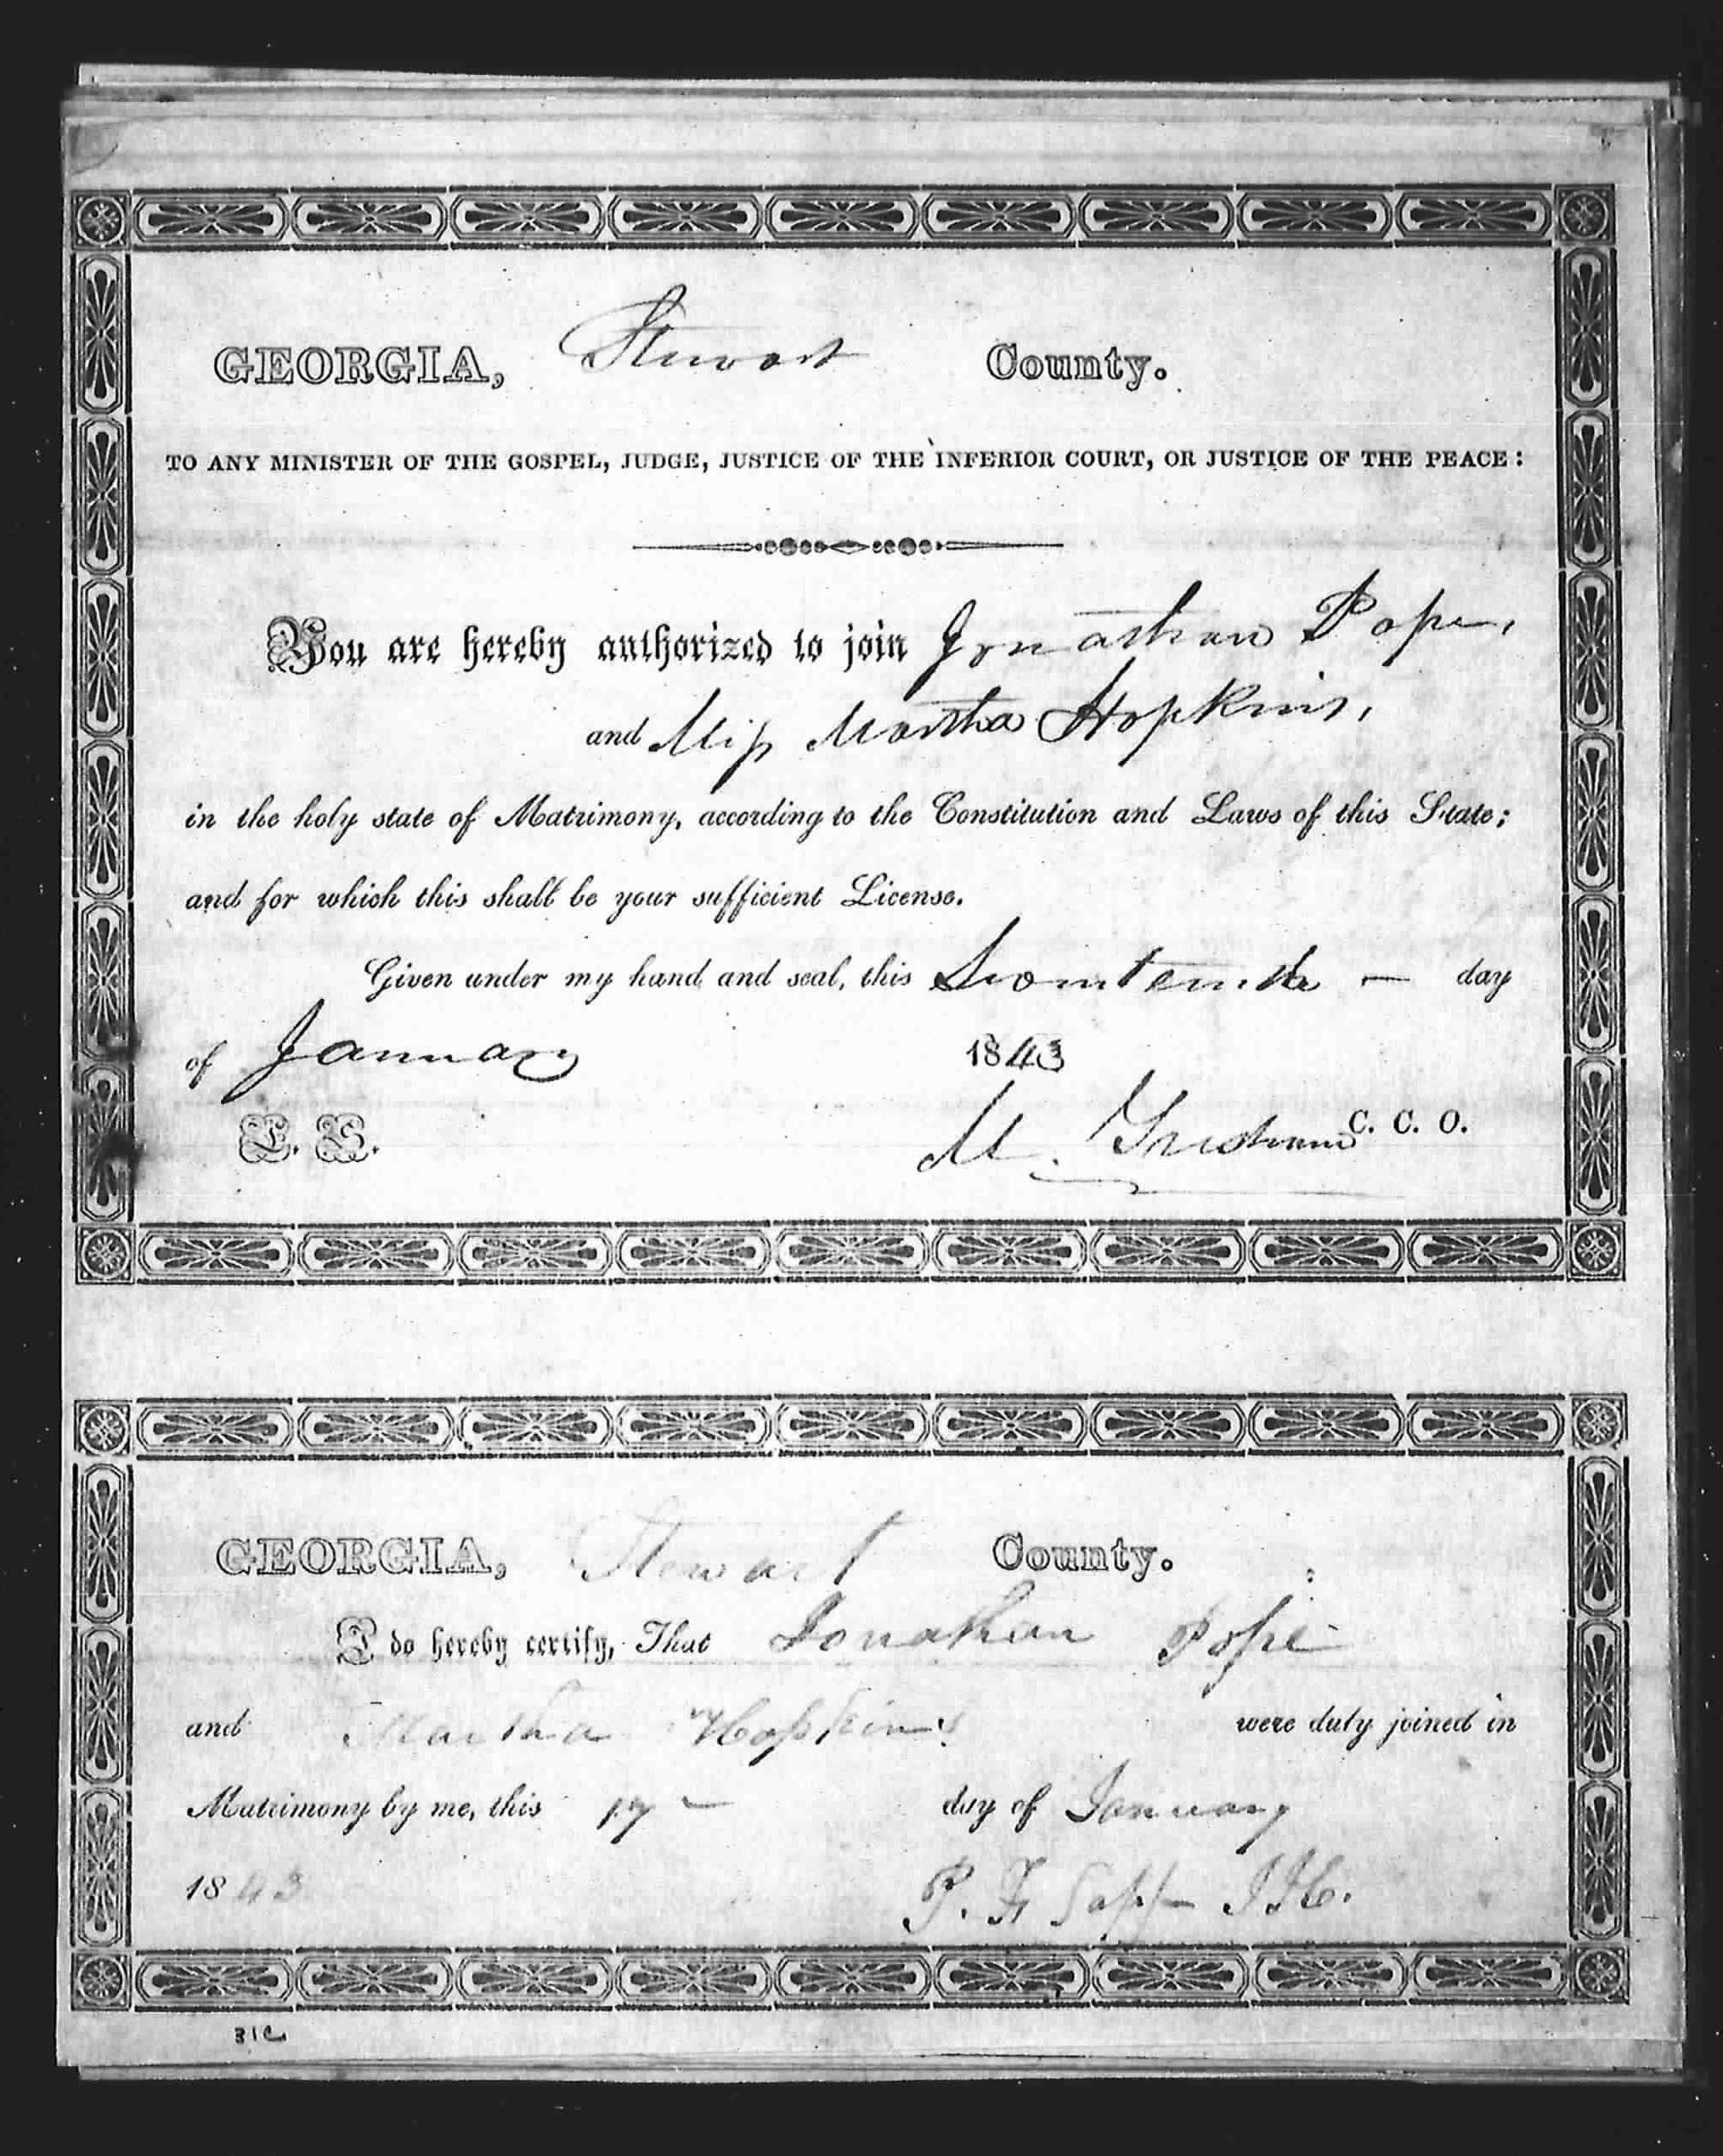 GEORGIA, Stewart County.
TO ANY MINISTER OF THE GOSPEL, JUDGE, JUSTICE OF THE INFERIOR COURT, OR JUSTICE OF THE PEACE:
You are hereby authorized to join Jonathan Pope,
and Miss Martha Hopkins,
in the holy state of Matrimony, according to the Constitution and Laws of this State;
and for which this shall be your sufficient License.
Given under my hand and seal, this day
of January 1843
L. S. M. C. C. O.
GEORGIA, Stewart County.
I do hereby certify, That Jonathan Pope
and Martha Hopkins were duly joined in
Matrimony by me, this 17 day of January
1843 P. F. Sapp